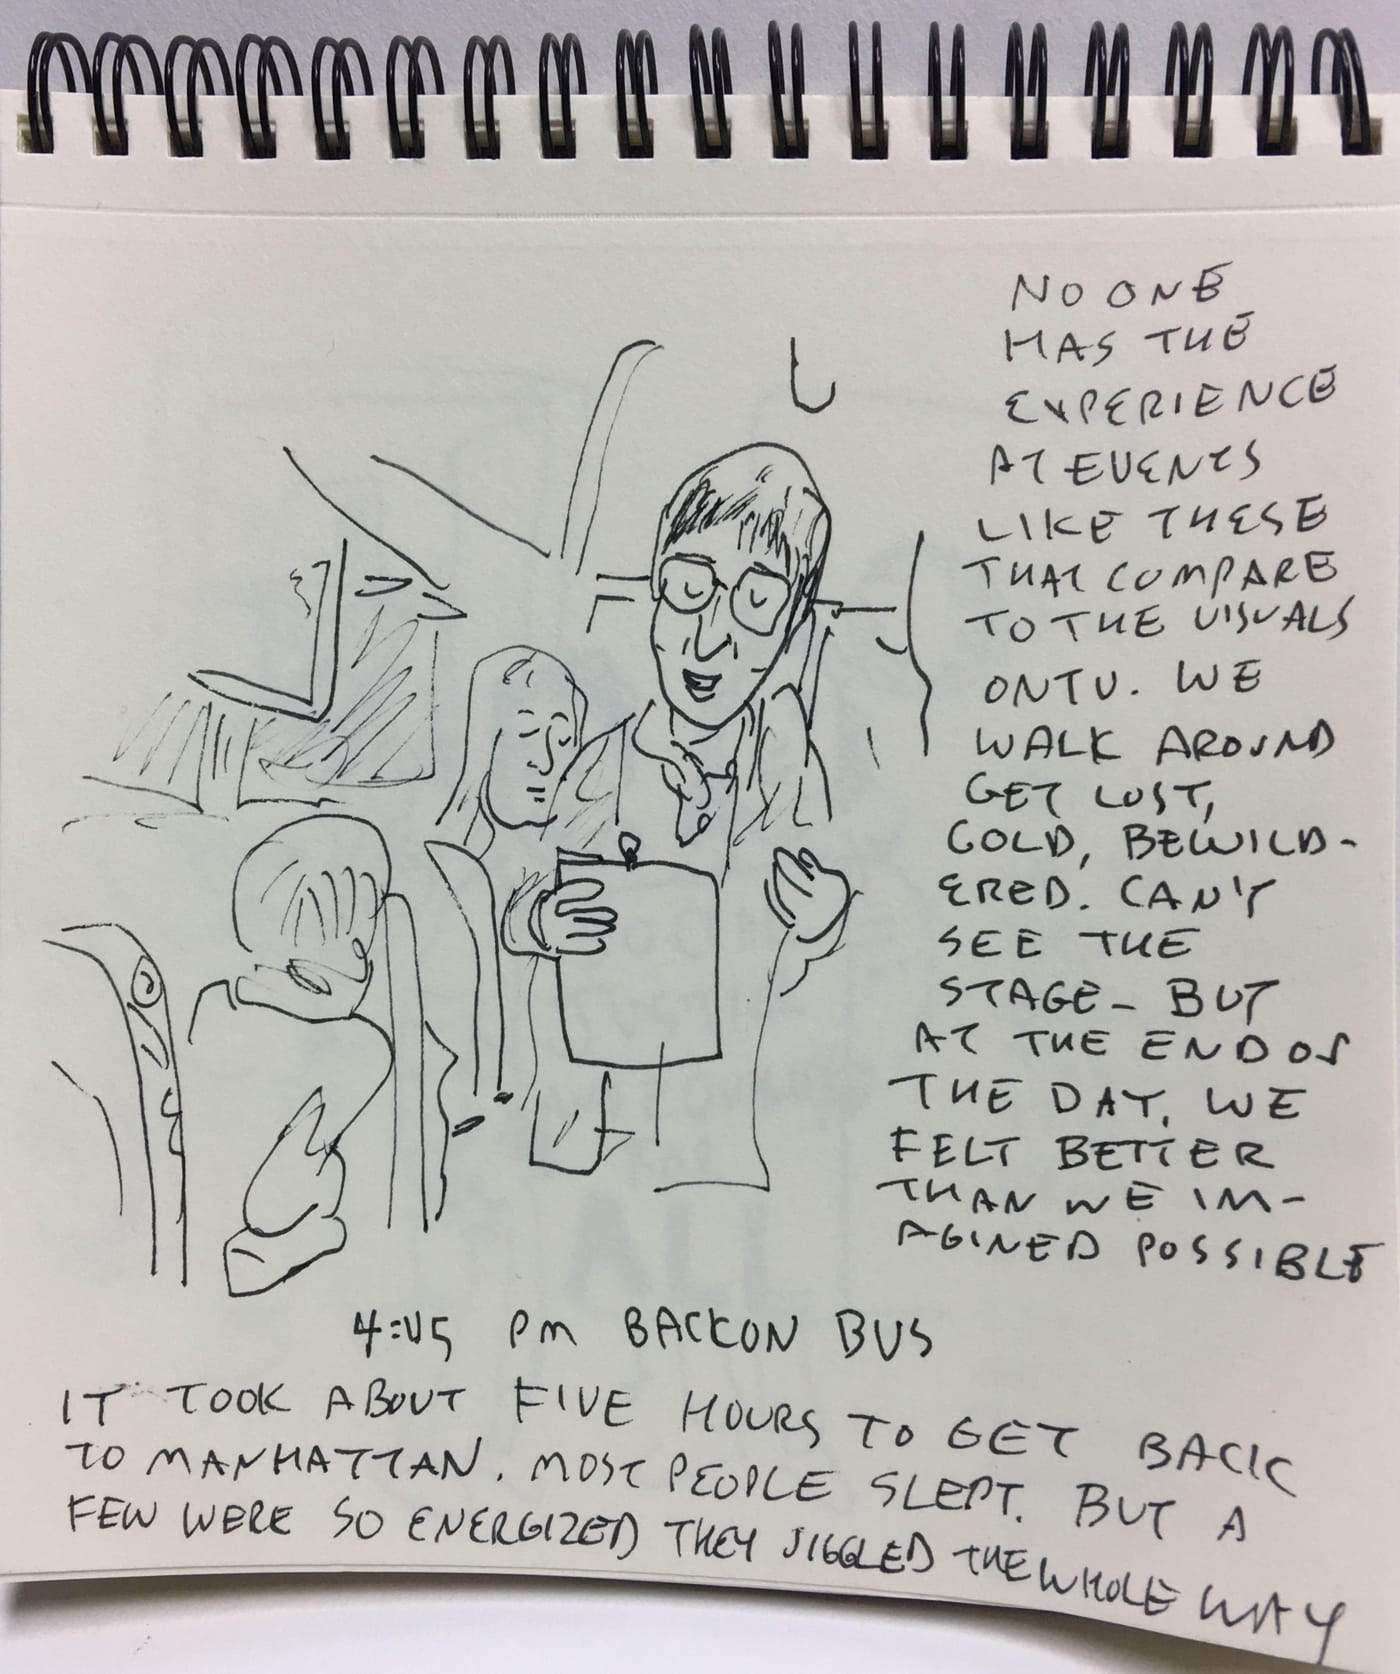 NO ONE
HAS THE
EXPERIENCE
AT EVENTS
LIKE THESE
THAT COMPARE
TO THE VISUALS
ON TV. WE
WALK AROUND
GET LOST,
COLD, BEWILD-
ERED. CAN'T
SEE THE
STAGE - BUT
AT THE END OF
THE DAY, WE
FELT BETTER
THAN WE IM-
AGINED POSSIBLE
4:45 PM BACK ON BUS
IT TOOK ABOUT FIVE HOURS TO GET BACK
TO MANHATTAN. MOST PEOPLE SLEPT. BUT A
FEW WERE SO ENERGIZED THEY JIGGLED THE WHOLE WAY